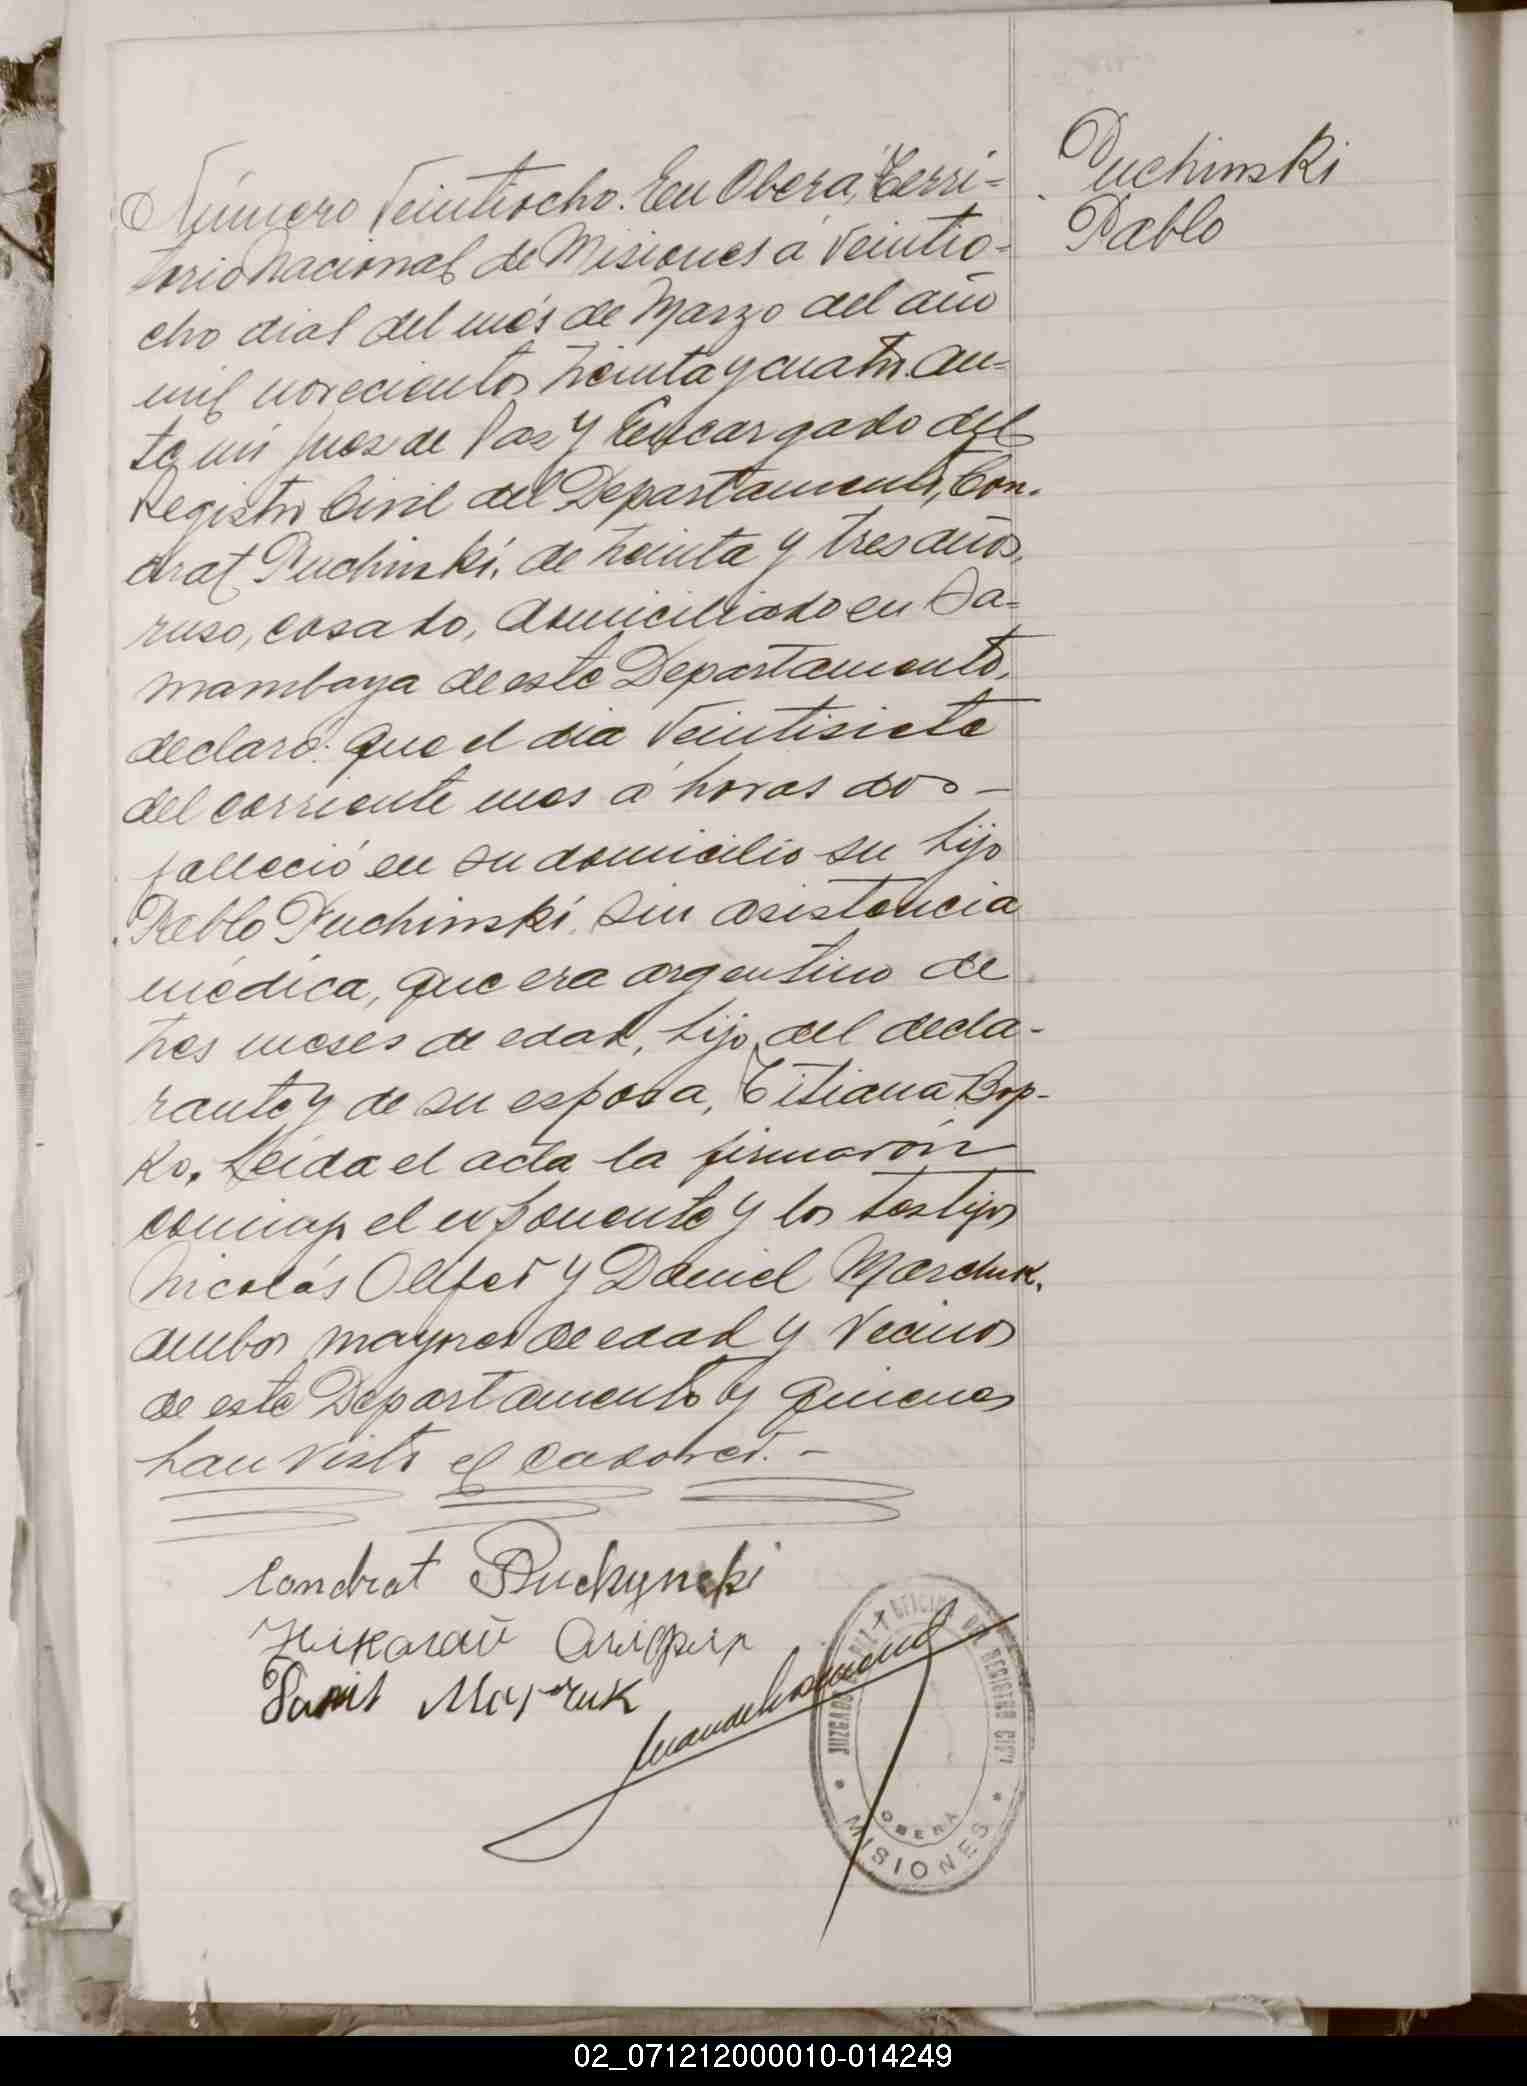 Puchinski
Pablo
Número Veintiocho. En Oberá, Terri-
torio Nacional de Misiones á Veintio-
cho dias del més de Marzo del año
mil novecientos treinta y cuatro. An-
te mi Juez de Paz y Encargado del
Registro Civil del Departamento, Con-
drat Puchinski, de treinta y tres años,
ruso, casado, domiciliado en Sa-
mambaya de este Departamento,
declaró: que el dia Veintisiete
del corriente mes á horas dos-
falleció en su domicilio su hijo
Pablo Puchinski, sin asistencia
médica, que era argentino de
tres meses de edad, hijo del decla-
rante y de su esposa, Titiana Bop-
ko. Leida el acta la firmaron
conmigo el exponente y los testigos
Nicolás Olifer y Daniel Marchuk,
ambos mayores de edad y vecinos
de este Departamento y quienes
han visto el cadaver.-
Condrat Puchynski
JUZGADO DE PAZ Y OFICINA DEL REGISTRO CIVIL
OBERA
MISIONES
02_071212000010-014249